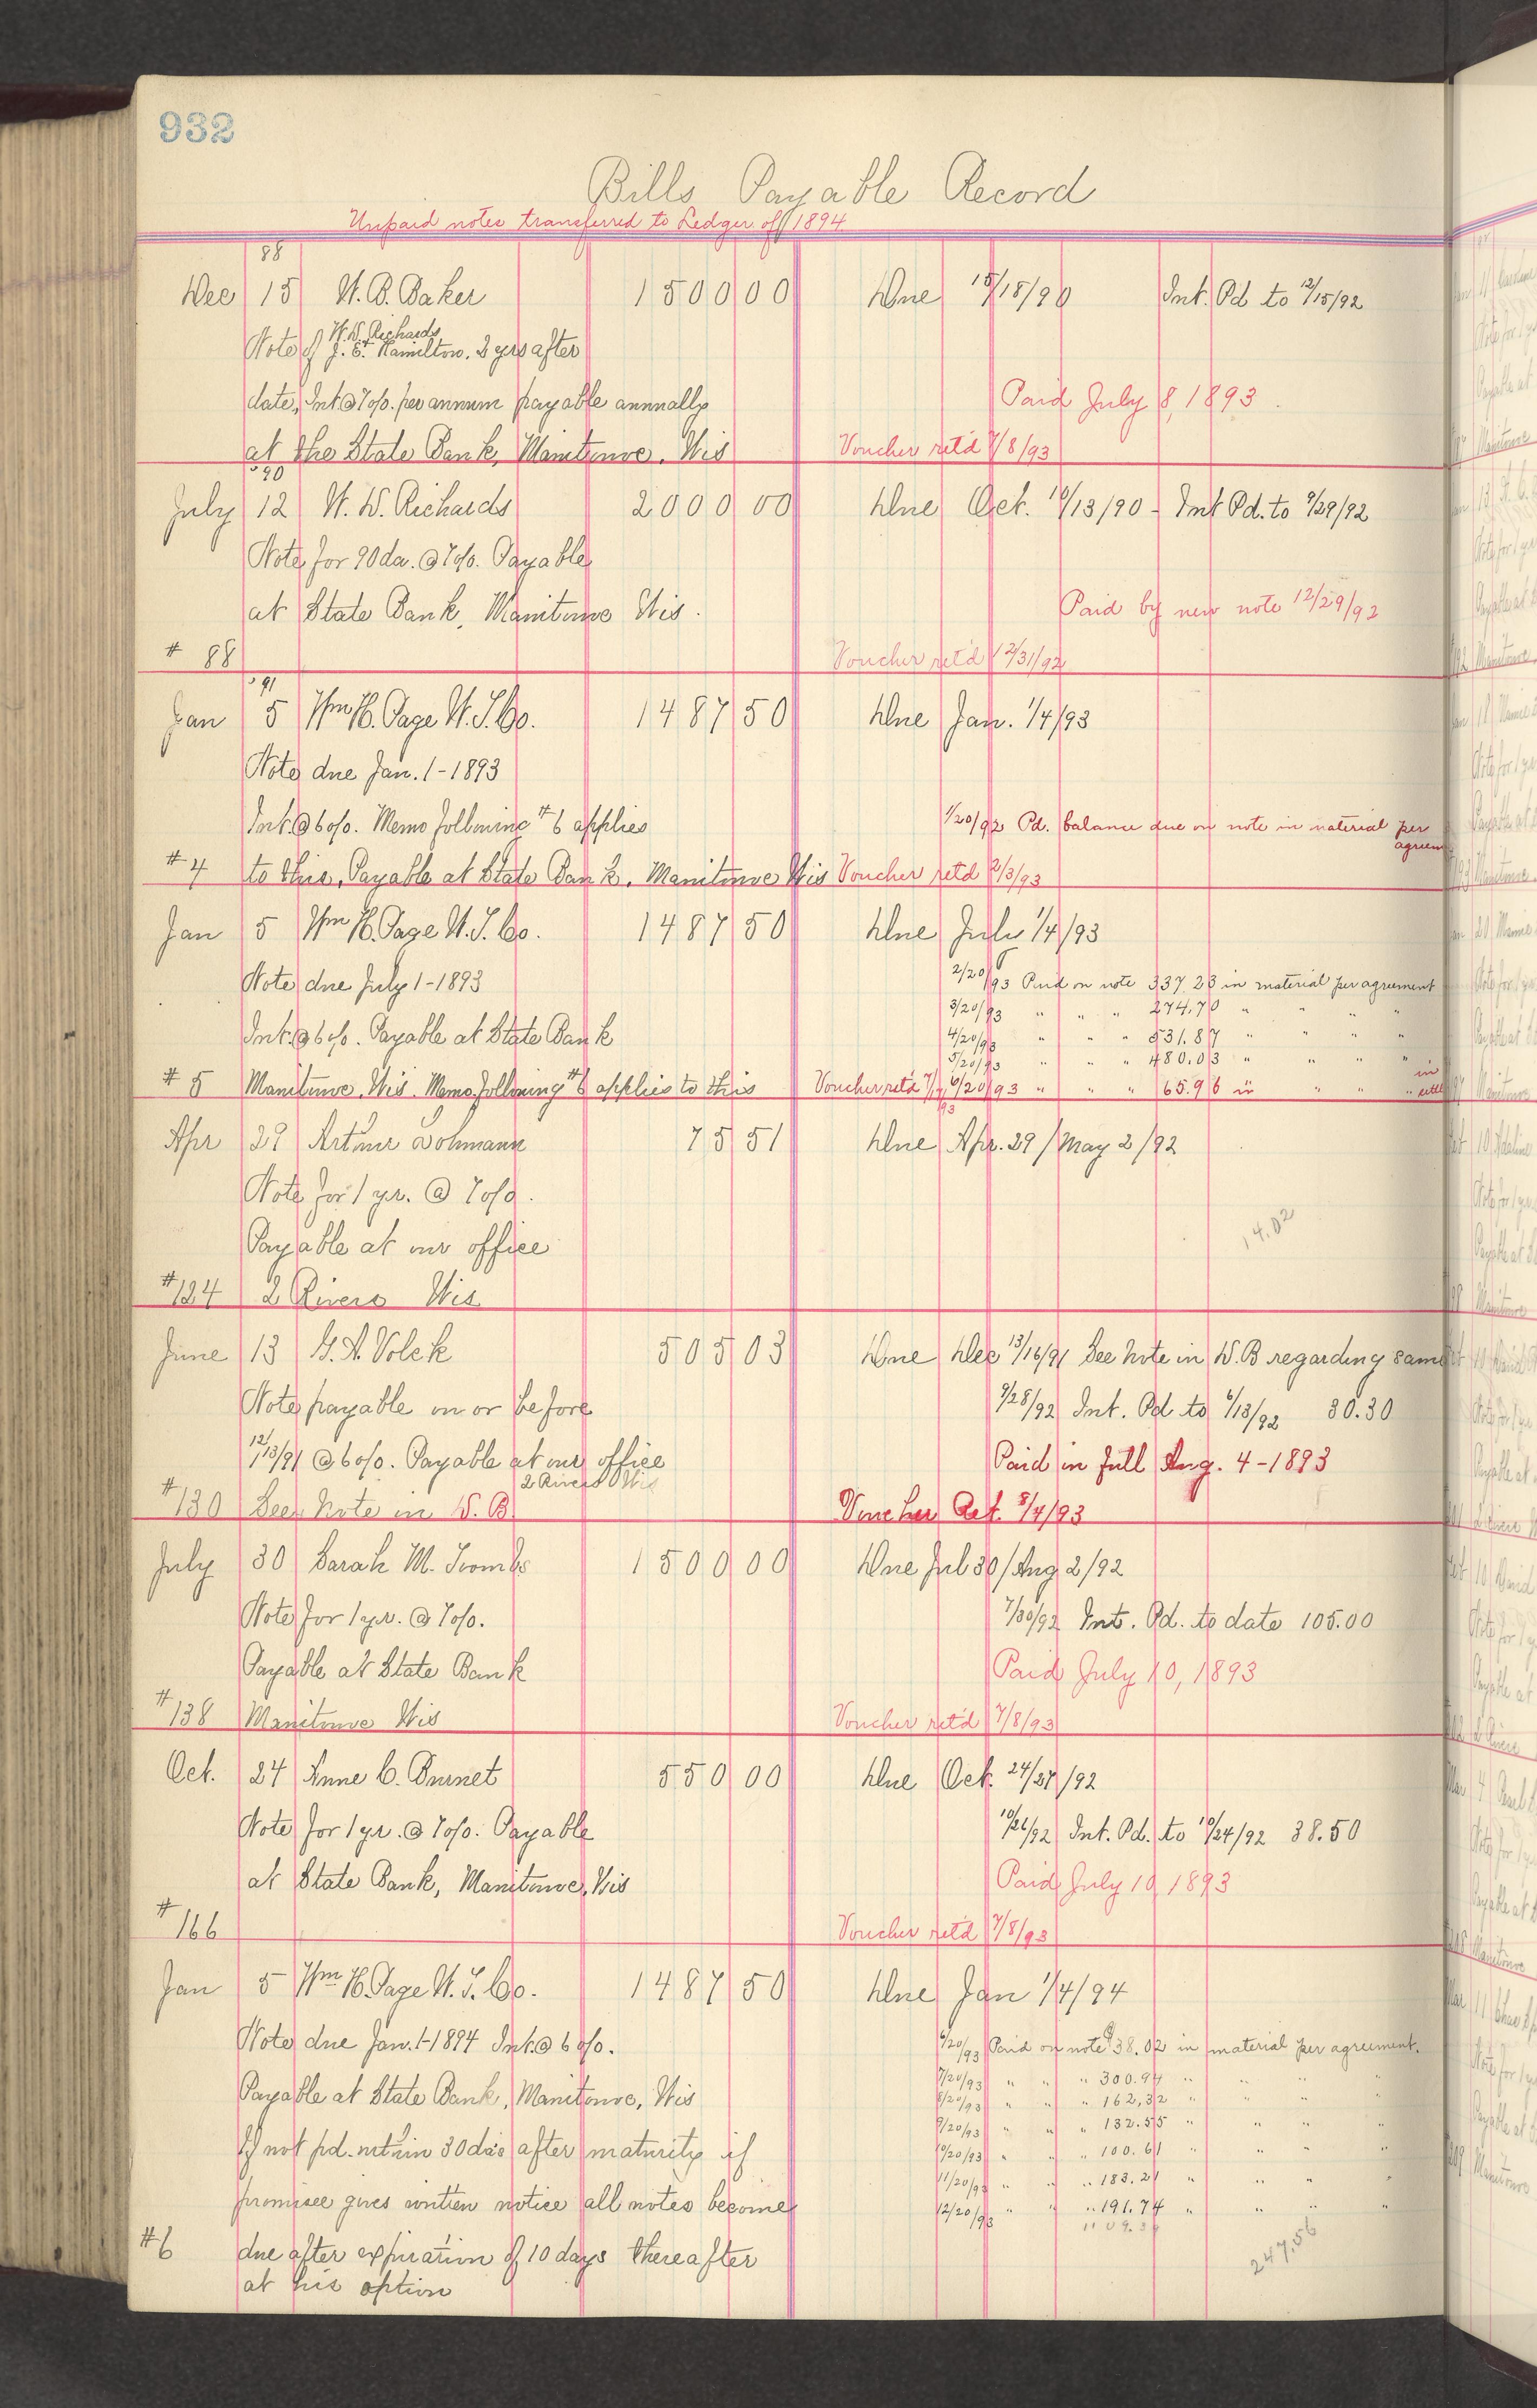 932
Bills Payable Record
Unpaid notes transferred to Ledger of 1894
88
Dec 15 W. B. Baker 1500 00 Due 15/18/90 Int. Pd to 12/15/92
W. W. Richards
Note of J. E. Hamilton. 2 yrs after
date, Int @ 7 o/o. per annum payable annually Paid July 8, 1893
at the State Bank, Manitowoc, Wis Voucher ret'd 7/8/93
'90
July 12 W. W. Richards 2000 00 Due Oct. 10/13/90 - Int Pd. to 9/29/92
Note for 90 da. @ 7 o/o. Payable
at State Bank, Manitowoc Wis. Paid by new note 12/29/92
# 88 Voucher ret'd 12/31/92
'91
Jan 5 Wm H. Page W. T. Co. 1487 50 Due Jan. 1/4/93
Note due Jan. 1 - 1893
Int. @ 6 o/o. Memo following #6 applies 1/20/92 Pd. balance due on note in material per
agreem
#4 to this, Payable at State Bank, Manitowoc Wis Voucher ret'd 2/3/93
Jan 5 Wm H. Page W. T. Co. 1487 50 Due July 1/4/93
Note due July 1 - 1893 2/20/93 Paid on note 337.23 in material per agreement
3/20/93 " " " 274.70 " " " "
Int. @ 6 o/o. Payable at State Bank 4/20/93 " " " 531.87 " " " "
5/20/93 " " " 480.03 " " " "
#5 Manitowoc, Wis. Memo following #6 applies to this Voucher ret'd 7/7/93 6/20/93 " " " 65.96 in " " " in settl
Apr 29 Arthur Lohmann 75 51 Due Apr. 29/May 2/92
Note for 1 yr. @ 7 o/o.
Payable at our office 14.02
#124 2 Rivers Wis
June 13 G. A. Volck 505 03 Due Dec 13/16/91 See Note in W. B regarding same
Note payable on or before 9/28/92 Int. Pd to 6/13/92 30.30
12/13/91 @ 6 o/o. Payable at our office Paid in full Aug. 4 - 1893
2 Rivers Wis
#130 See Note in W. B. Voucher Ret. 8/4/93
July 30 Sarah M. Toombs 1500 00 Due Jul 30/Aug 2/92
Note for 1 yr. @ 7 o/o. 7/30/92 Int. Pd. to date 105.00
Payable at State Bank Paid July 10, 1893
#138 Manitowoc Wis Voucher ret'd 7/8/93
Oct. 24 Anne C. Burnet 550 00 Due Oct. 24/27/92
Note for 1 yr. @ 7 o/o. Payable 10/26/92 Int. Pd. to 10/24/92 38.50
at State Bank, Manitowoc, Wis Paid July 10 1893
#166 Voucher ret'd 7/8/93
Jan 5 Wm H. Page W. T. Co. 1487 50 Due Jan 1/4/94
Note due Jan. 1 - 1894 Int. @ 6 o/o. 6/20/93 Paid on note $38.02 in material per agreement.
7/20/93 " " " 300.94 " " " "
Payable at State Bank, Manitowoc, Wis 8/20/93 " " " 162,32 " " " "
9/20/93 " " " 132.55 " " " "
If not pd. within 30 da's after maturity if 10/20/93 " " " 100.61 " " " "
11/20/93 " " " 183.21 " " " "
promisee gives written notice all notes become 12/20/93 " " " 191.74 " " " "
247.56
#6 due after expiration of 10 days thereafter
at his option